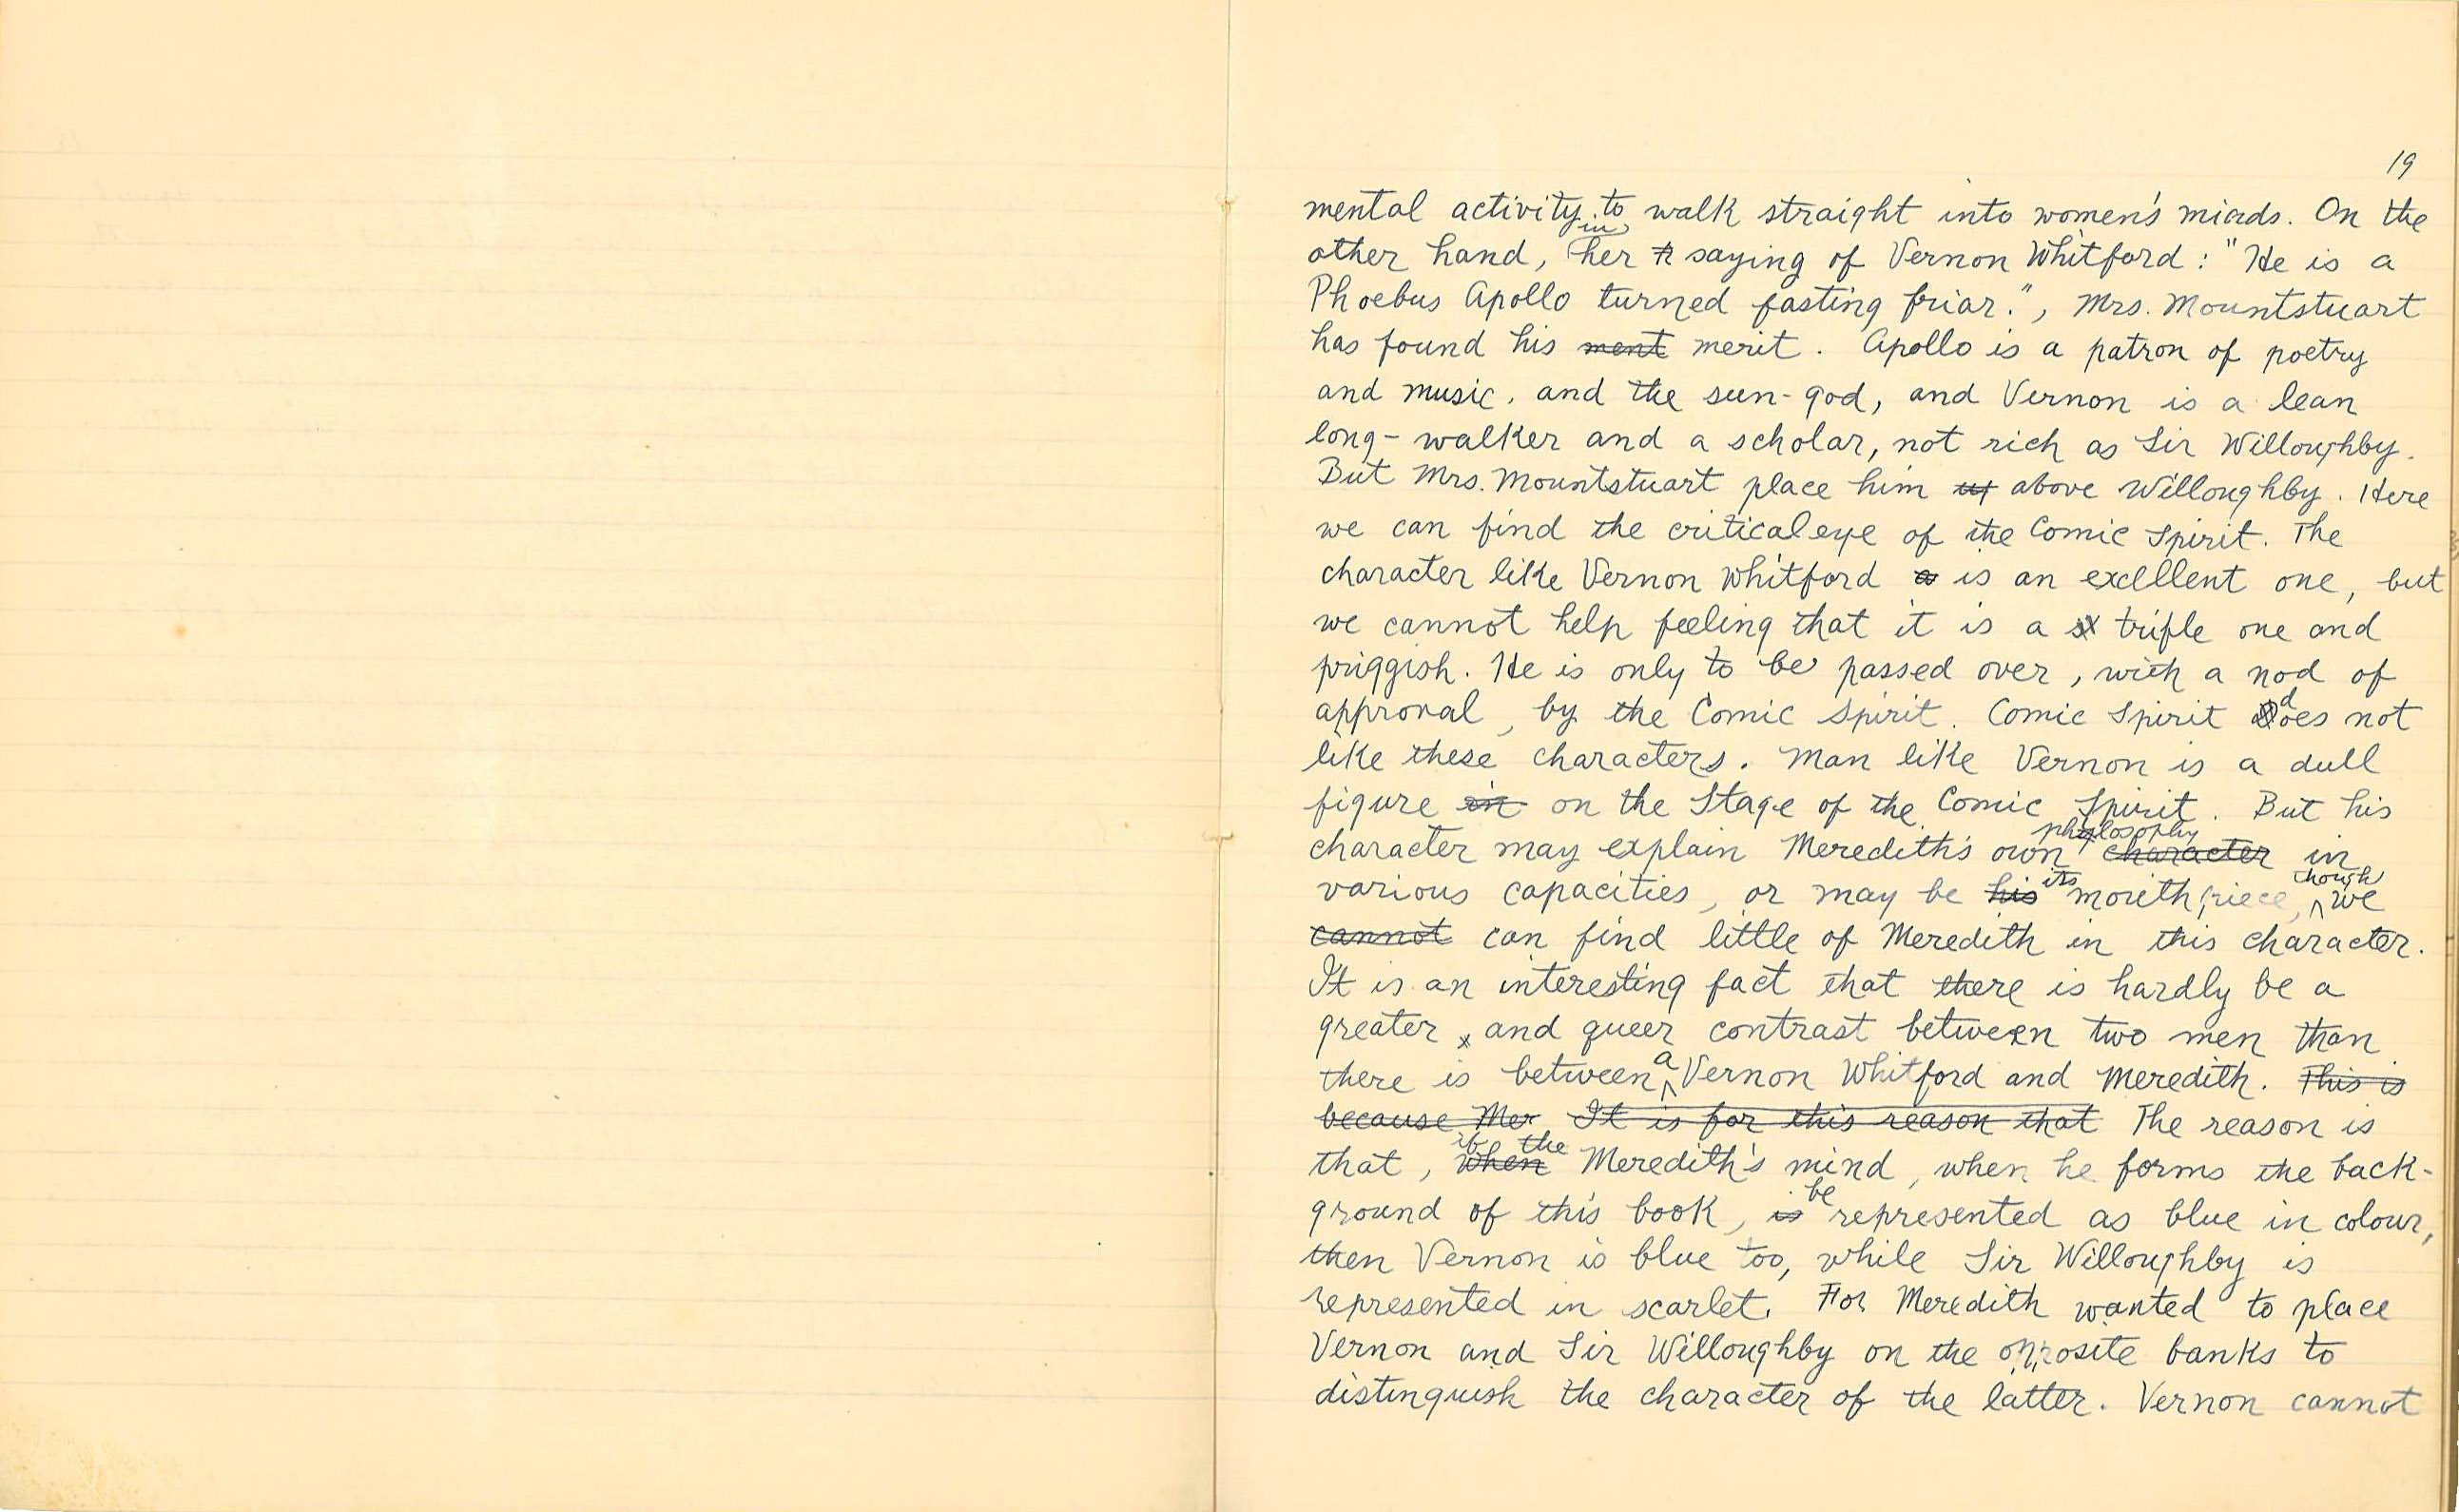 19
mental activity to walk straight into women's minds. On the
other hand, in her saying of Vernon Whitford : "He is a
Phoebus Apollo turned fasting friar.", Mrs. Mountstuart
has found his ment merit. Apollo is a patron of poetry
and music, and the sun-god, and Vernon is a lean
long-walker and a scholar, not rich as Sir Willoughby.
But Mrs. Mountstuart place him up above Willoughby. Here
we can find the critical eye of the Comic Spirit. The
character like Vernon Whitford a is an excellent one, but
we cannot help feeling that it is a trifle one and
priggish. He is only to be passed over, with a nod of
approval, by the Comic Spirit. Comic Spirit does not
like these characters. Man like Vernon is a dull
figure in on the Stage of the Comic Spirit. But his
character may explain Meredith's own philosophy character in
various capacities, or may be his its mouthpiece, though we
cannot can find little of Meredith in this character.
It is an interesting fact that there is hardly be a
greater and queer contrast between two men than
there is between a Vernon Whitford and Meredith. This is
because Mer It is for this reason that The reason is
that, when if the Meredith's mind, when he forms the back-
ground of this book, is be represented as blue in colour,
then Vernon is blue too, while Sir Willoughby is
represented in scarlet. For Meredith wanted to place
Vernon and Sir Willoughby on the opposite banks to
distinguish the character of the latter. Vernon cannot